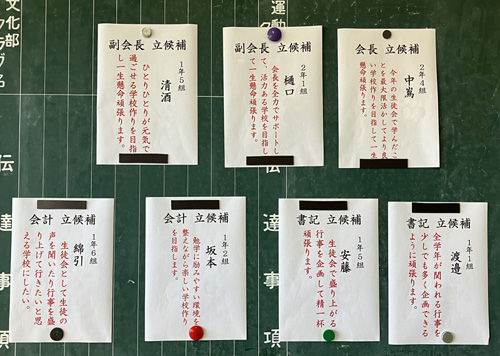 文化部
運動
会長 立候補
2年4組
中嶌
今年の生徒会で学んだこ
とを最大限活かしてより良
い学校作りを目指して一生
懸命頑張ります。
副会長 立候補
2年1組
樋口
会長を全力でサポートし
て、活力ある学校を目指し
て一生懸命頑張ります。
副会長 立候補
1年5組
清酒
ひとりひとりが元気で
過ごせる学校作りを目指
し一生懸命頑張ります。
書記 立候補
1年1組
渡邉
全学年が関われる行事を
少しでも多く企画できる
ように頑張ります。
書記 立候補
1年5組
安藤
生徒会で盛り上がる
行事を企画して精一杯
頑張ります。
会計 立候補
1年2組
坂本
勉学に励みやすい環境を
整えながら楽しい学校作り
を目指します。
会計 立候補
1年6組
綿引
生徒会として生徒の
声を聞いたり行事を盛
り上げて行きたいと思
える学校にしたい。
伝達事項
伝達事項